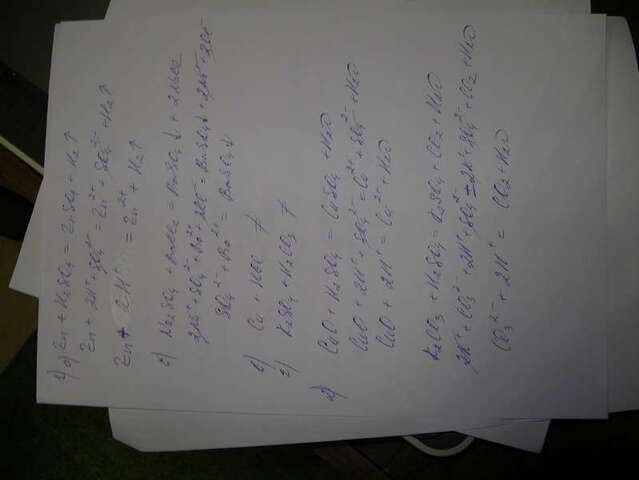 1) а) Zn + H2SO4 = ZnSO4 + H2↑
Zn + 2H⁺ + SO4²⁻ = Zn²⁺ + SO4²⁻ + H2↑
Zn + 2H⁺ = Zn²⁺ + H2↑
Na2SO4 + BaCl2 = BaSO4↓ + 2NaCl
2Na⁺ + SO4²⁻ + Ba²⁺ + 2Cl⁻ = BaSO4↓ + 2Na⁺ + 2Cl⁻
SO4²⁻ + Ba²⁺ = BaSO4↓
Cu + HCl ≠
K2SO4 + H2CO3 ≠
2) CuO + H2SO4 = CuSO4 + H2O
CuO + 2H⁺ + SO4²⁻ = Cu²⁺ + SO4²⁻ + H2O
CuO + 2H⁺ = Cu²⁺ + H2O
K2CO3 + H2SO4 = K2SO4 + CO2 + H2O
2K⁺ + CO3²⁻ + 2H⁺ + SO4²⁻ = 2K⁺ + SO4²⁻ + CO2 + H2O
CO3²⁻ + 2H⁺ = CO2 + H2O